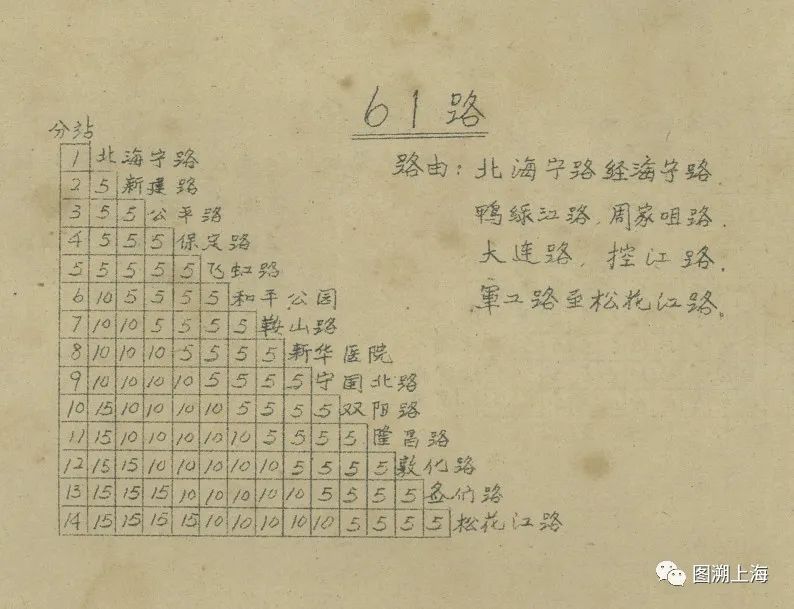 61路
分站
1 北海宁路
2 5 新建路
3 5 5 公平路
4 5 5 5 保定路
5 5 5 5 5 飞虹路
6 10 5 5 5 5 和平公园
7 10 10 5 5 5 5 鞍山路
8 10 10 10 5 5 5 5 新华医院
9 10 10 10 10 5 5 5 5 宁国北路
10 15 10 10 10 10 5 5 5 5 双阳路
11 15 10 10 10 10 10 5 5 5 5 隆昌路
12 15 15 10 10 10 10 10 5 5 5 5 敦化路
13 15 15 15 10 10 10 10 10 5 5 5 5 图们路
14 15 15 15 15 10 10 10 10 10 5 5 5 5 松花江路
路由：北海宁路经海宁路
鸭绿江路.周家咀路.
大连路.控江路.
军工路至松花江路。
图溯上海